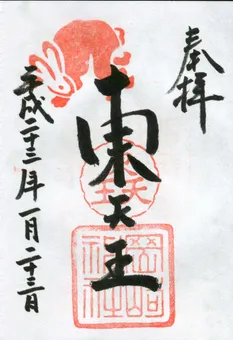 奉拝
東天王
岡崎
神社
平成二十三年一月二十三日